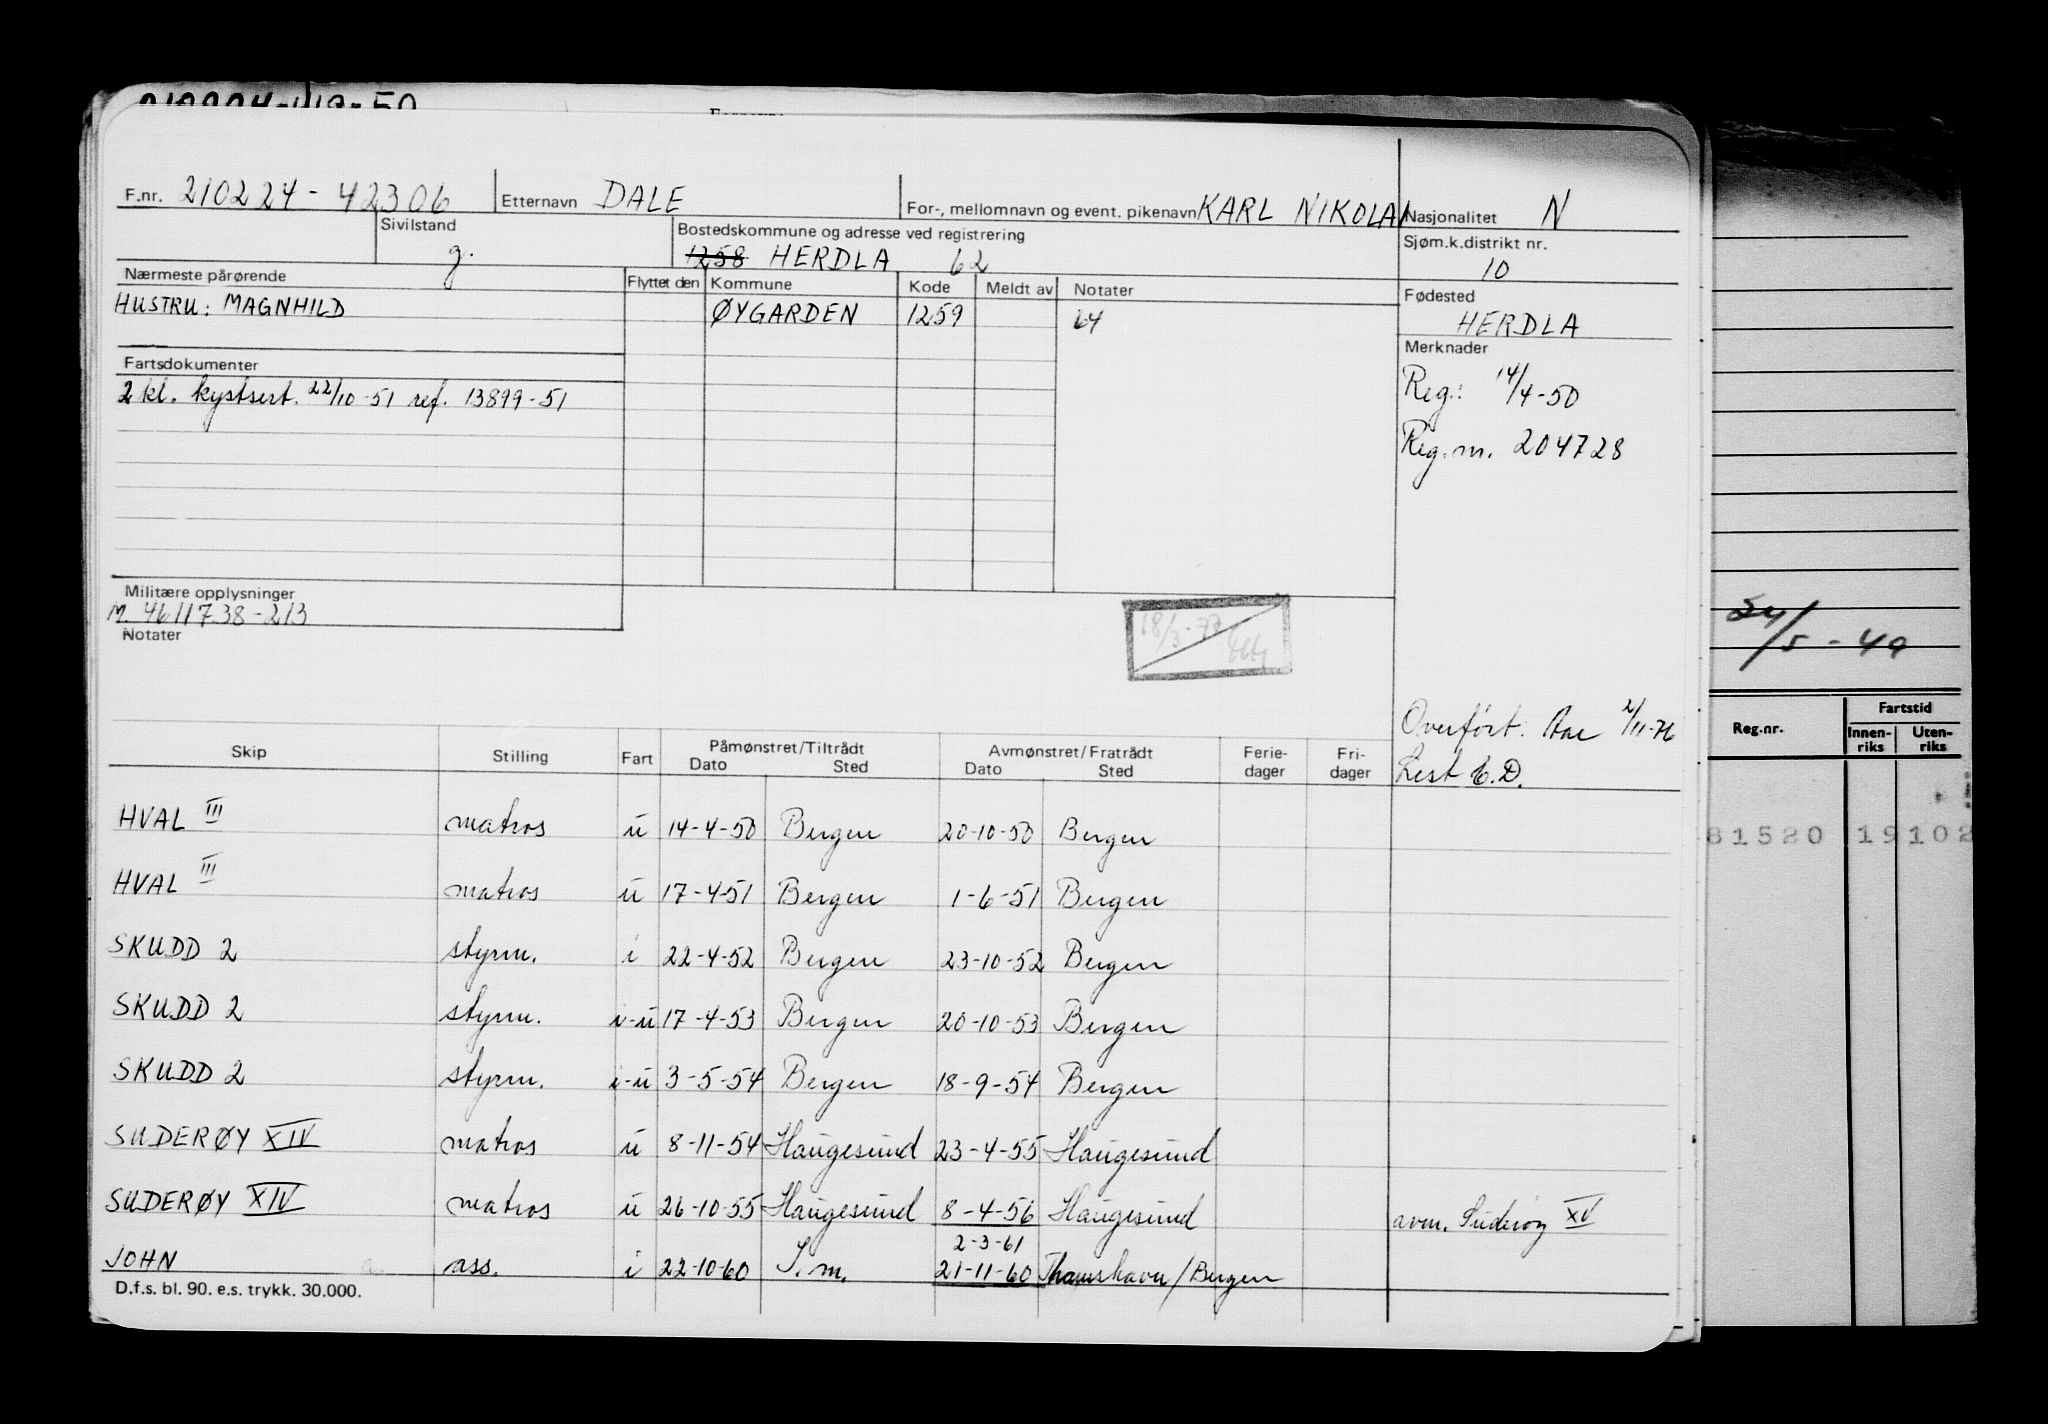 F.nr. 210224-42306 Etternavn DALE For-, mellomnavn og event. pikenavn KARL NIKOLAI Nasjonalitet N
Sivilstand g. Bostedskommune og adresse ved registrering 1258 HERDLA 62 Sjøm.k.distrikt nr. 10
Nærmeste pårørende Flyttet den Kommune Kode Meldt av Notater Fødested
HUSTRU: MAGNHILD ØYGARDEN 1259 64 HERDLA
Fartsdokumenter Merknader
2 kl. kystsert. 22/10-51 ref. 13899-51 Reg.: 14/4-50
Reg.nr. 204728
Militære opplysninger
M. 4611738-213
Notater
18/3-77
24/5-49
Overført: 2/11-76
Rest E.D.
Skip Stilling Fart Påmønstret/Tiltrådt Dato Sted Avmønstret/Fratrådt Dato Sted Ferie-dager Fri-dager
Reg.nr. Fartstid Innen-riks Uten-riks
HVAL III matros u 14-4-50 Bergen 20-10-50 Bergen
81520 19102
HVAL III matros u 17-4-51 Bergen 1-6-51 Bergen
SKUDD 2 styrm. i 22-4-52 Bergen 23-10-52 Bergen
SKUDD 2 styrm. i-u 17-4-53 Bergen 20-10-53 Bergen
SKUDD 2 styrm. i-u 3-5-54 Bergen 18-9-54 Bergen
SUDERØY XIV matros u 8-11-54 Haugesund 23-4-55 Haugesund
SUDERØY XIV matros u 26-10-55 Haugesund 8-4-56 Haugesund avm. Suderøy XV
2-3-61
JOHN ass. i 22-10-60 S.m. 21-11-60 Thamshavn/Bergen
D.f.s. bl. 90. e.s. trykk. 30.000.